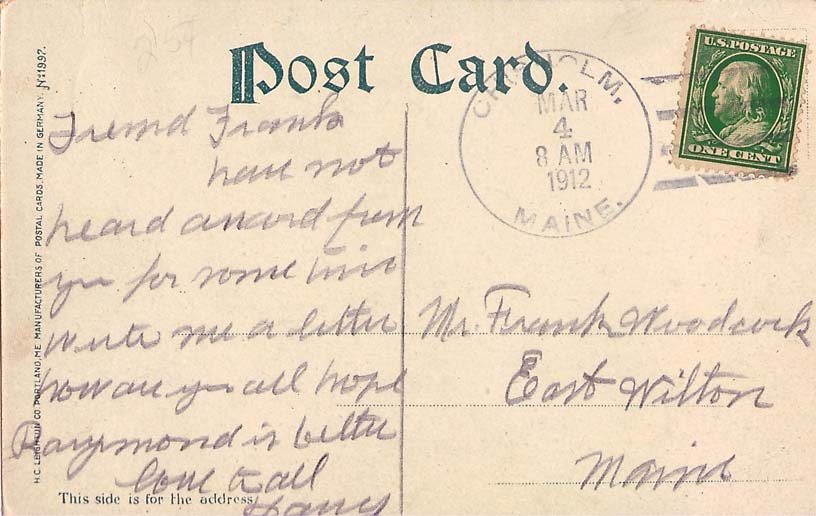 254
Post Card.
CHISHOLM,
MAR
4
8 AM
1912
MAINE.
U.S. POSTAGE
ONE CENT
H.C. LEIGHTON CO. PORTLAND, ME MANUFACTURERS OF POSTAL CARDS, MADE IN GERMANY. No 1992.
Freind Frank
have not
heard a word from
you for some time
write me a letter
how are you all hope
Raymond is better
love to all
Harry
Mr. Frank Woodcock
East Wilton
Maine
This side is for the address